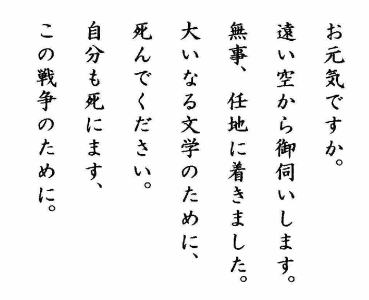 お元気ですか。
遠い空から御伺いします。
無事、任地に着きました。
大いなる文学のために、
死んでください。
自分も死にます、
この戦争のために。